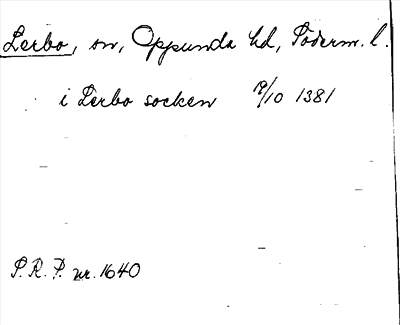 Lerbo, sn, Oppunda hd, Söderm. l.
i Lerbo socken 9/10 1381
S. R. P. nr. 1640